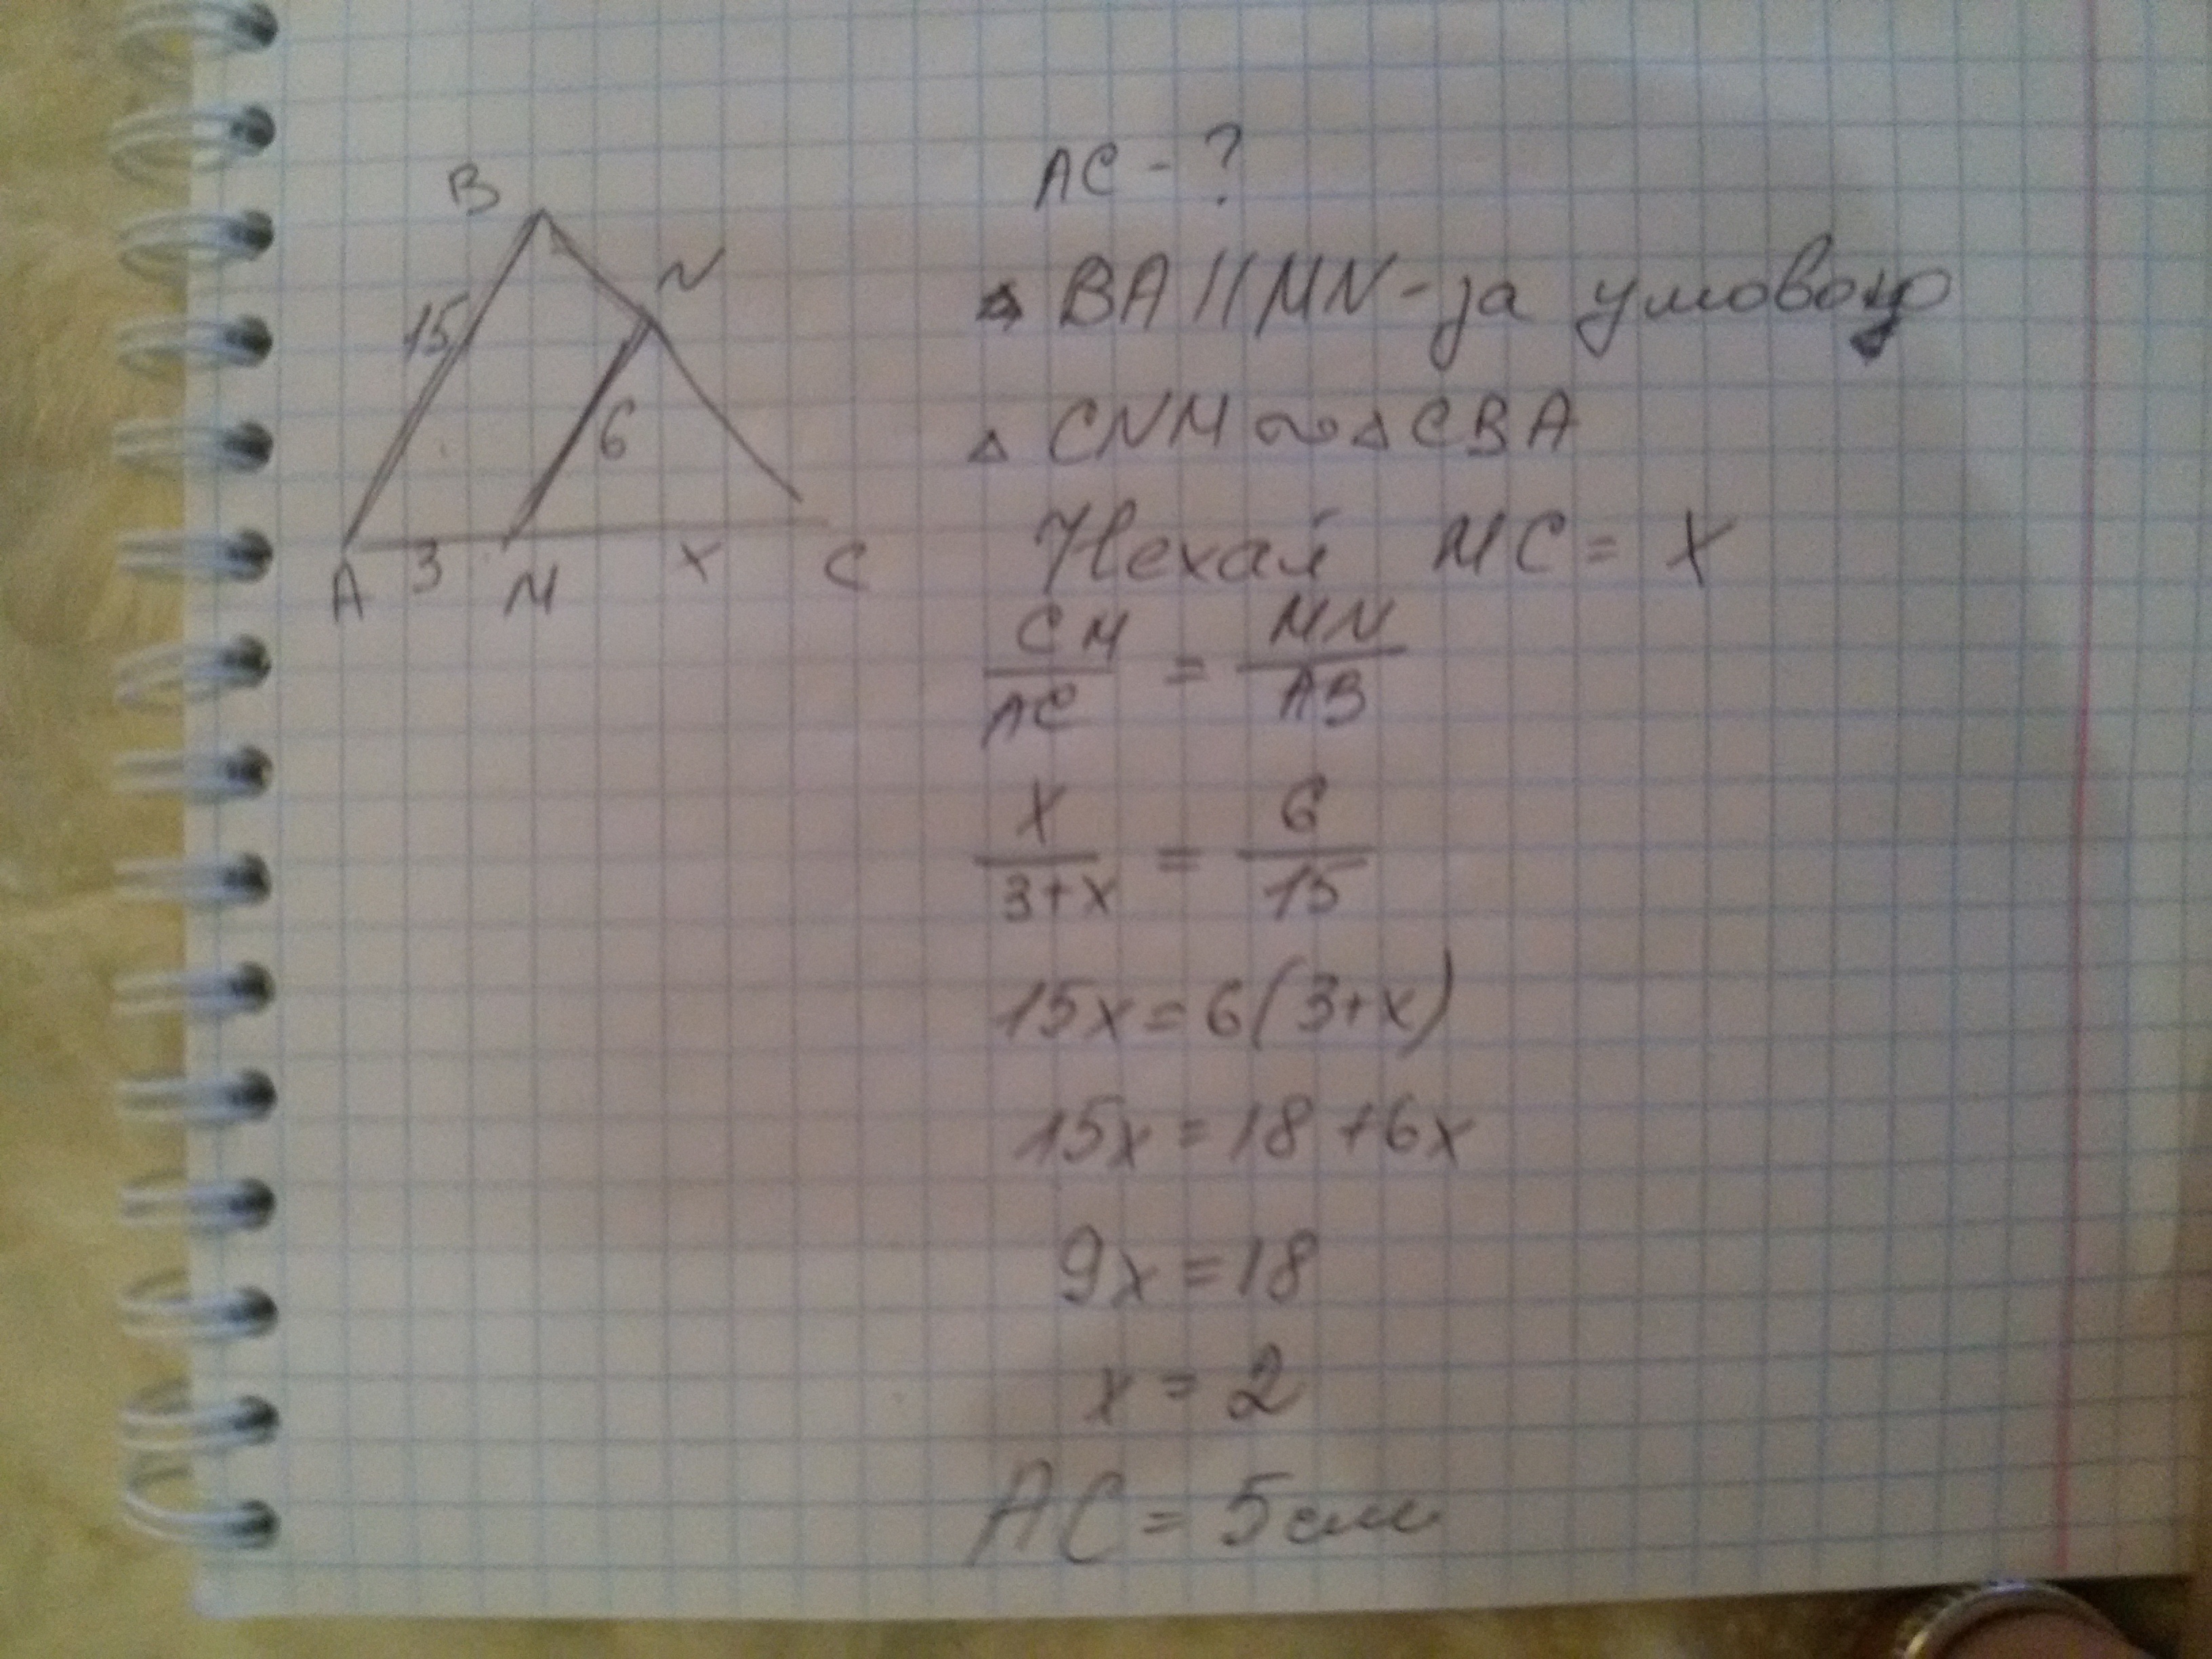 B
N
15
6
A 3 M x C
AC - ?
BA || MN - за умовою
△ CNM ∾ △ CBA
Нехай MC = x
CM/AC = MN/AB
x/3+x = 6/15
15x = 6(3+x)
15x = 18 + 6x
9x = 18
x = 2
AC = 5 см